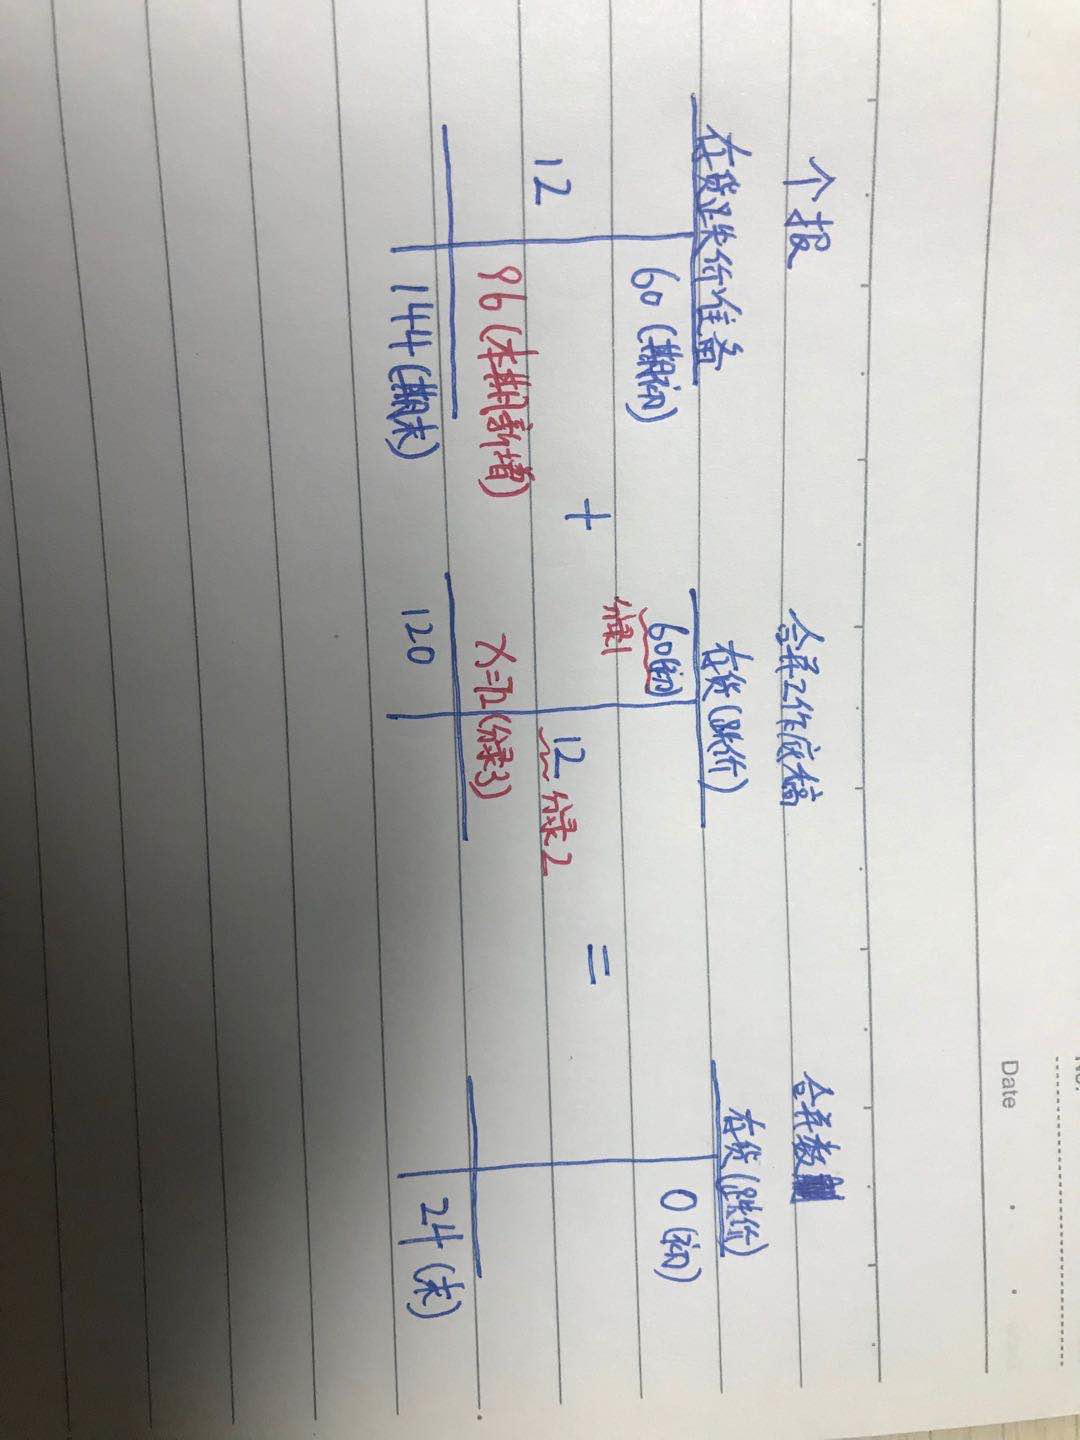 Date
个报
合并工作底稿
合并数
存货跌价准备
存货(跌价)
存货(跌价)
60(期初)
60(初)
0(初)
分录1
12
+
12 分录2
=
96(本期新增)
X=72(分录3)
144(期末)
120
24(末)